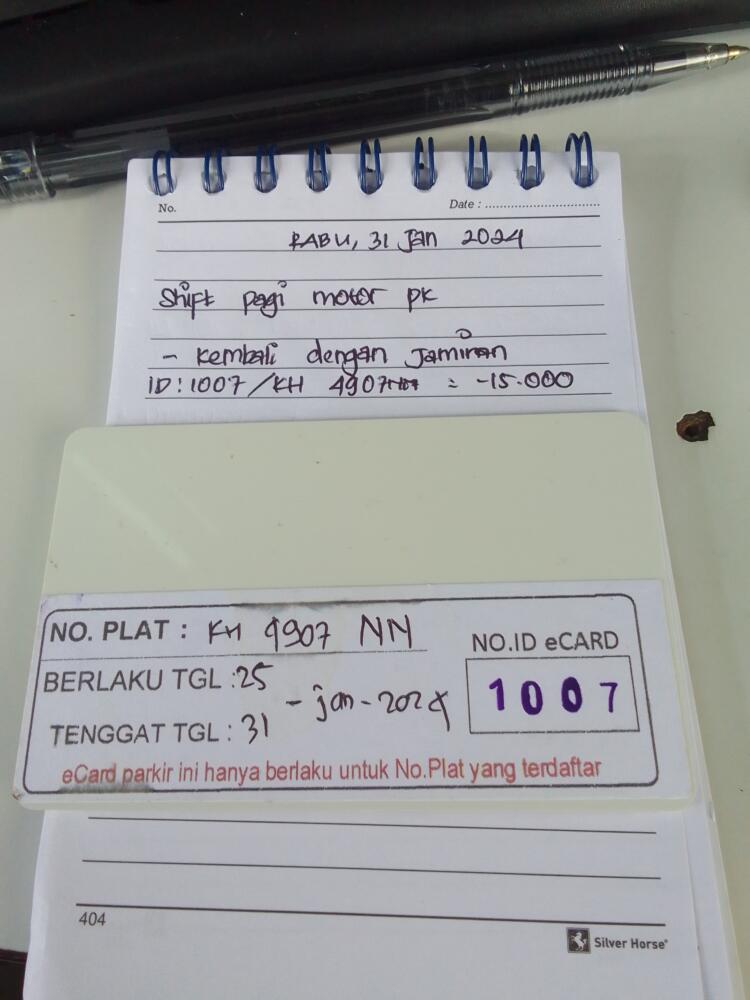 No.
Date : ..............................
RABU, 31 Jan 2024
Shift pagi motor pk
- Kembali dengan Jaminan
ID : 1007 / KH 4907 = -15.000
NO. PLAT : KH 4907 NN
NO.ID eCARD
BERLAKU TGL : 25
1007
- jan - 2024
TENGGAT TGL : 31
eCard parkir ini hanya berlaku untuk No.Plat yang terdaftar
404
Silver Horse®